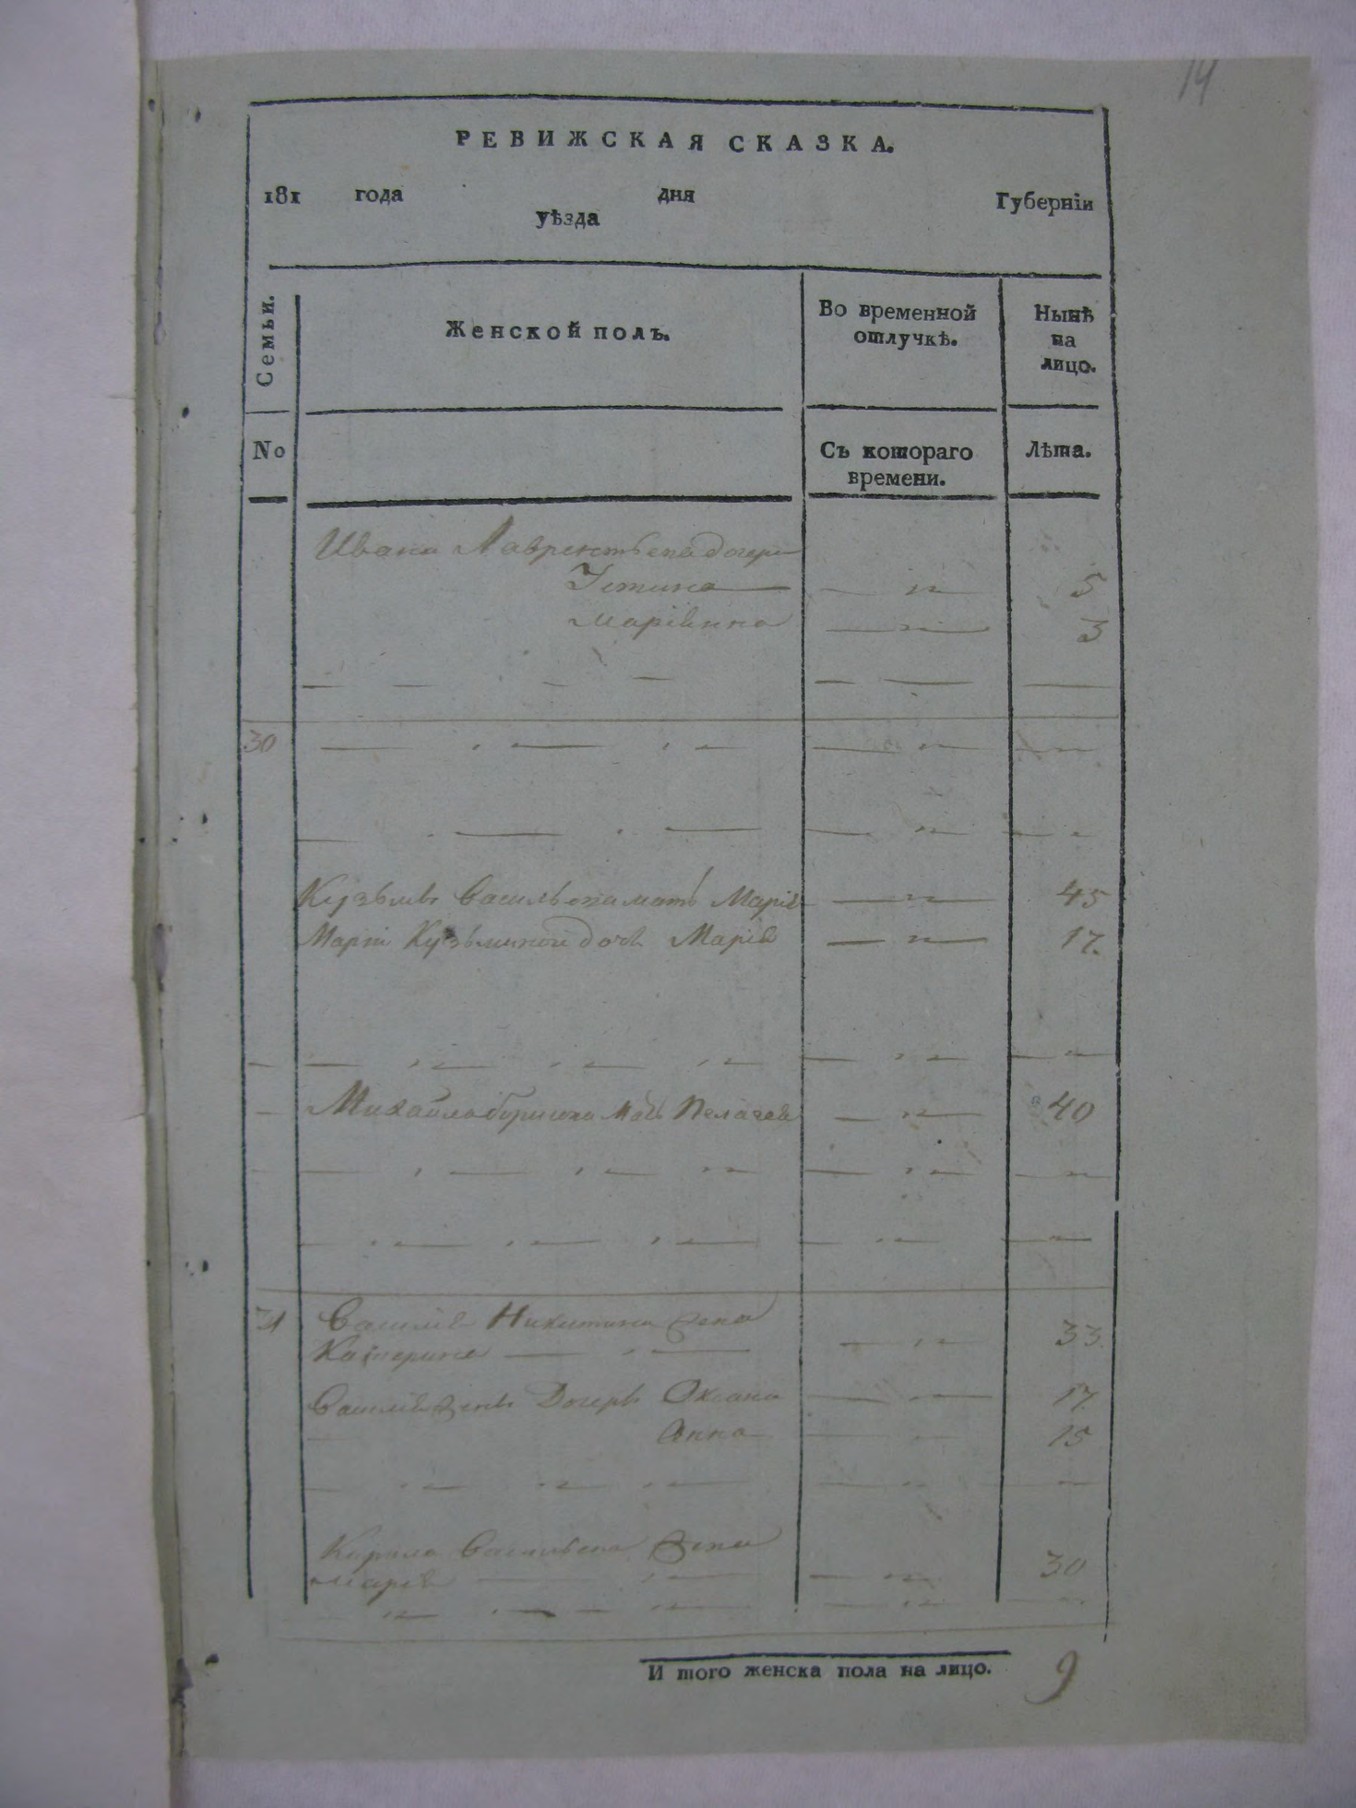 14
РЕВИЖСКАЯ СКАЗКА.
181 года дня Губерніи
уѣзда
Семьи. Женской полъ. Во временной отлучкѣ. Нынѣ на лицо.
No Съ котораго времени. Лѣта.
Ивана Лаврентьева дочери
Устина 5
3
30
Кузьмы Васильева мать Марія 45
Маріи дочь Марія 17.
Михайла мать Пелагея 40
31 Василія Никитина жена
Катерина 33
Василія дочери Оксана 17
Анна 15
Кирила Васильева жена
Марія 30
И того женска пола на лицо. 9